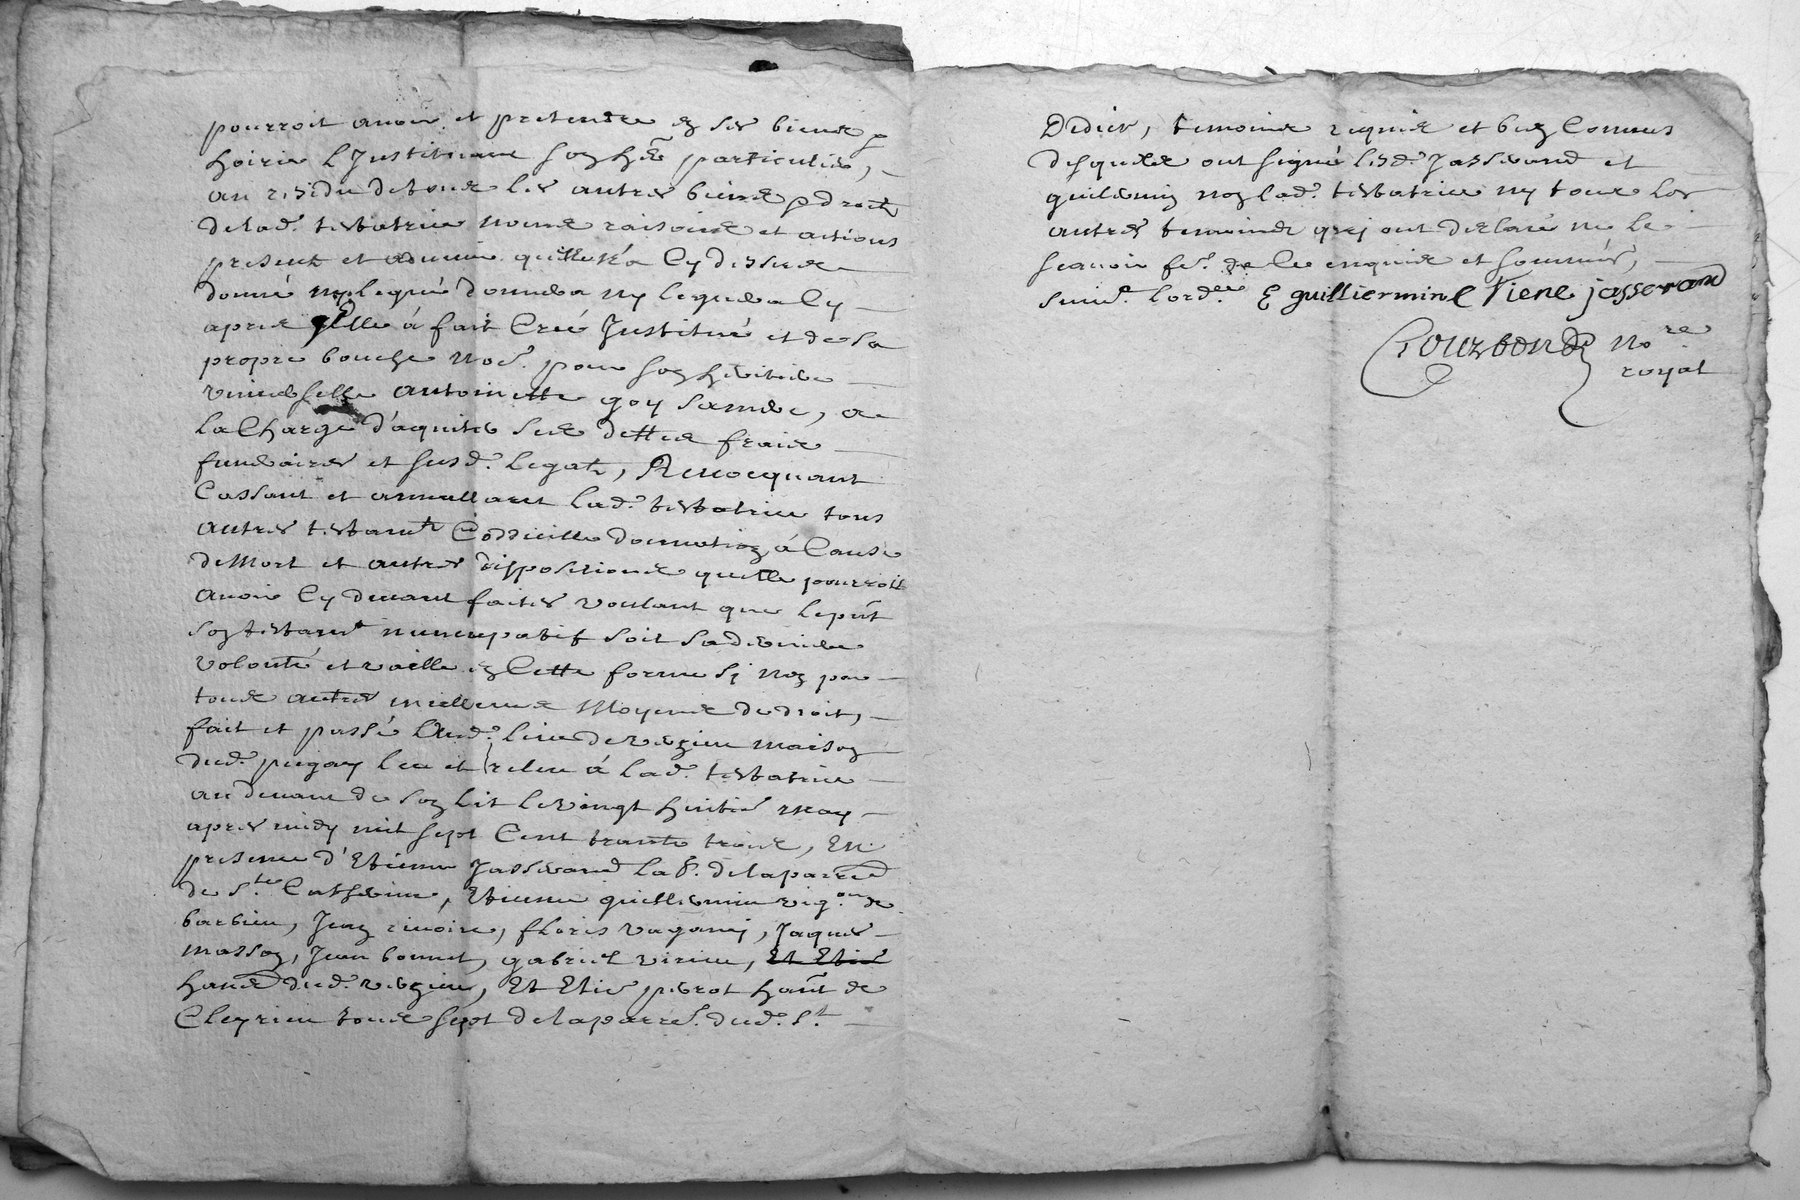 pourroit avoir et pretendre en ses biens &
hoirie l'Instituant son hẽr particulier,
au residu de tous les autres biens & droits
de lad.e testatrice noms raisons et actions
present et advenir qu'elle n'a cy dessus
donné ny legué donnera ny leguera cy
apres Elle à fait Creé Institué et de sa
propre bouche nom.é pour son heritiere
universelle antoinette goy sa mere, a
la Charge d'aquiter ses dettes fraix
funeraires et susd.s legats, Revocquant
Cassant et annullant lad.e testatrice tous
autres testamt Coddicille donnation à Cause
de Mort et autres disppositions quelle pourroit
avoir Cy devant faites voulant que le pñt
son testamt nuncupatif soit sa derniere
volonté et vaille en Cette forme si non par
tous autres meilleurs Moyens de droit,
fait et passé Aud. lieu de maison
dud. pugay leu et releu à lad.e testatrice
au devant de son lit le vingt huitie may
apres midy mil sept Cent trante trois, En
presence d'Etienne Jasserand lab.r de la parre
de S.te Catherine, Etienne guillermin vig.on de
barbieu, Jean rivoire, floris vaganei, Jaques
masson, Jean bonnet, gabriel virieu, Et Etie
hãns dud. , Et Etie perot hañt de
Cleyrieu tous sept de la parre. dud. S.t
Didier, temoins requis et bien Connus
desquels ont signé lesd. Jasserand et
guillermin non lad.e testatrice ny tous les
autres temoins qui ont declaré ne le
scavoir fe. de ce enquis et sommés,
suiv.t l'ord.ce E guilliermin eTiene jasserand
Courbon n.re
royal